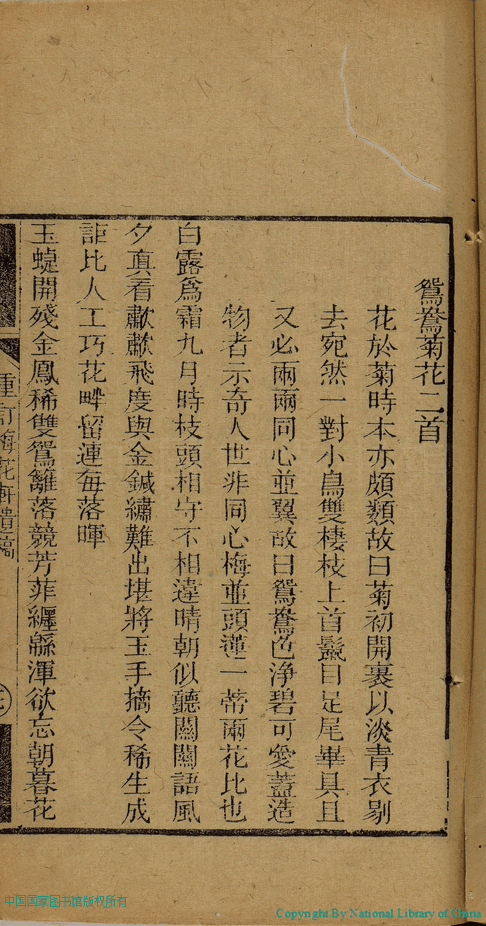 鴛鴦菊花二首
花於菊時本亦頗類故曰菊初開裹以淡青衣剔
去宛然一對小鳥雙棲枝上首鬣目足尾畢具且
又必兩兩同心並翼故曰鴛鴦色淨碧可愛蓋造
物者示奇人世非同心梅並頭蓮一蒂兩花比也
白露爲霜九月時枝頭相守不相違晴朝似聽關關語風
夕真看歗歗飛度與金鍼繡難出堪將玉手摘令稀生成
詎比人工巧花畔留連每落暉
玉蜨開殘金鳳稀雙鴛籬落競芳菲纏緜渾欲忘朝暮花
重訂梅花軒遺稿
中国国家图书馆版权所有
Copyright By National Library of China